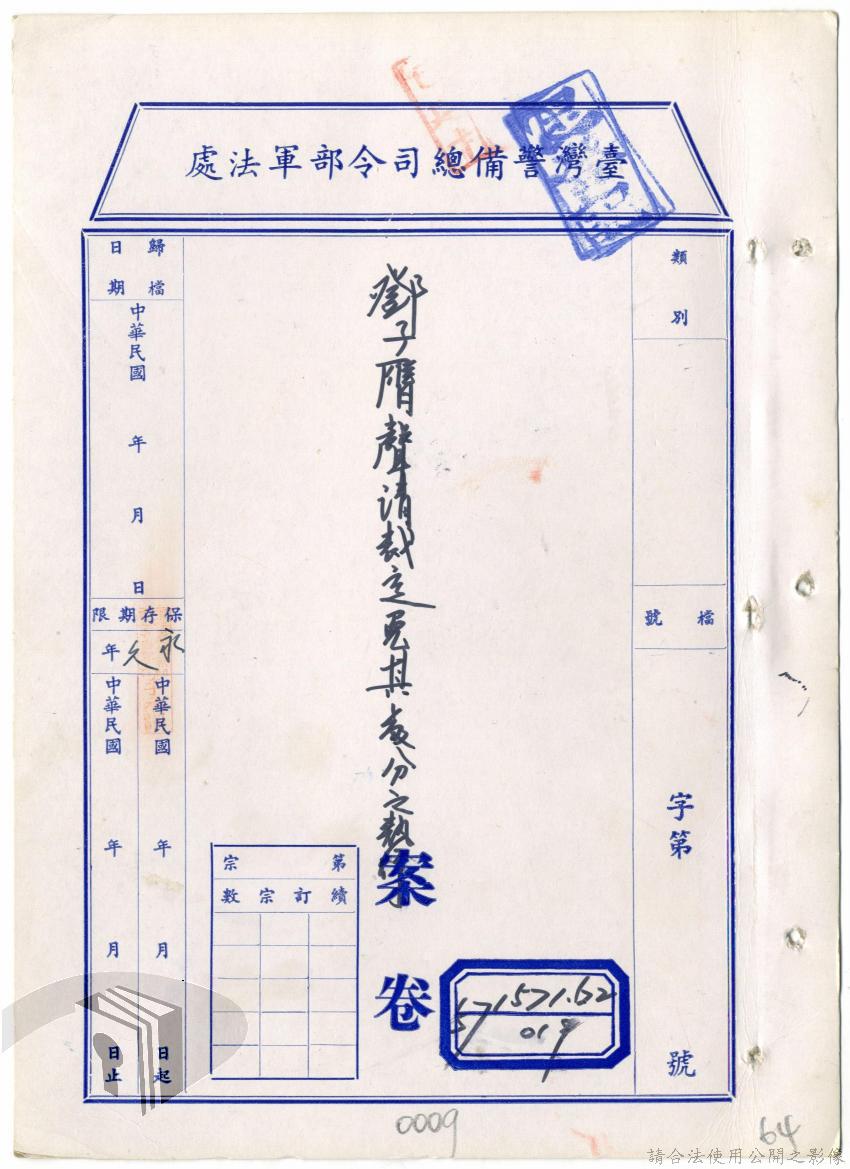 臺灣警備總司令部軍法處
類別
檔號
字第
號
鄧子膺聲請裁定免其處分之執行
案卷
第
宗
續訂宗數
571.62
019
歸檔日期
中華民國
年
月
日
保存期限
永久年
中華民國
年
月
日起
中華民國
年
月
日止
0009
64
請合法使用公開之影像